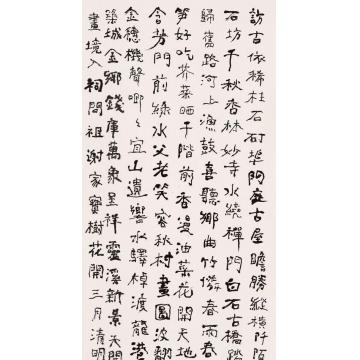 訪古依稀柱石村埠阿庭古屋瞻勝縱橫阡陌
石坊千秋香林妙寺水繞禪門白石古橋踏
歸舊路河上漁鼓喜聽鄉曲竹傍春雨春
笋好吃芥菜晒千階前香漫油菜花開天地
含芳門前綠水父老笑容秋村畫圖波翻
金穗機聲唧唧宜山遺響水驛棹渡龍港
築城金鄉錢庫萬象呈祥靈溪新景天開
畫境入祠問祖謝家寶樹花開三月清明